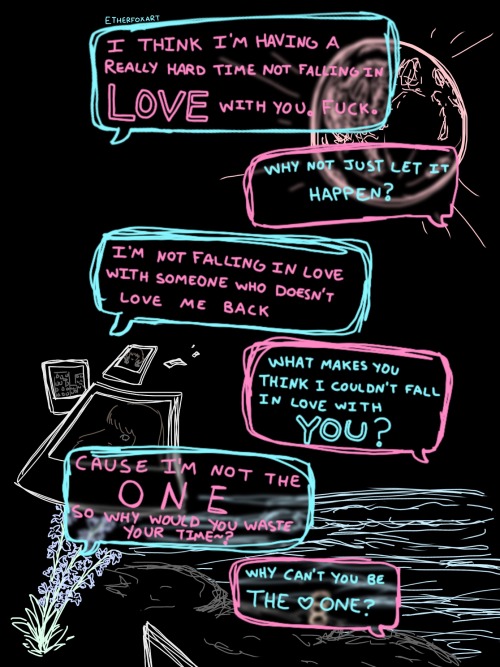 ETHERFOXART
I THINK I'M HAVING A
REALLY HARD TIME NOT FALLING IN
LOVE WITH YOU. FUCK.
WHY NOT JUST LET IT
HAPPEN?
I'M NOT FALLING IN LOVE
WITH SOMEONE WHO DOESN'T
LOVE ME BACK
WHAT MAKES YOU
THINK I COULDN'T FALL
IN LOVE WITH
YOU?
CAUSE I'M NOT THE
ONE
SO WHY WOULD YOU WASTE
YOUR TIME~?
WHY CAN'T YOU BE
THE ♡ ONE?